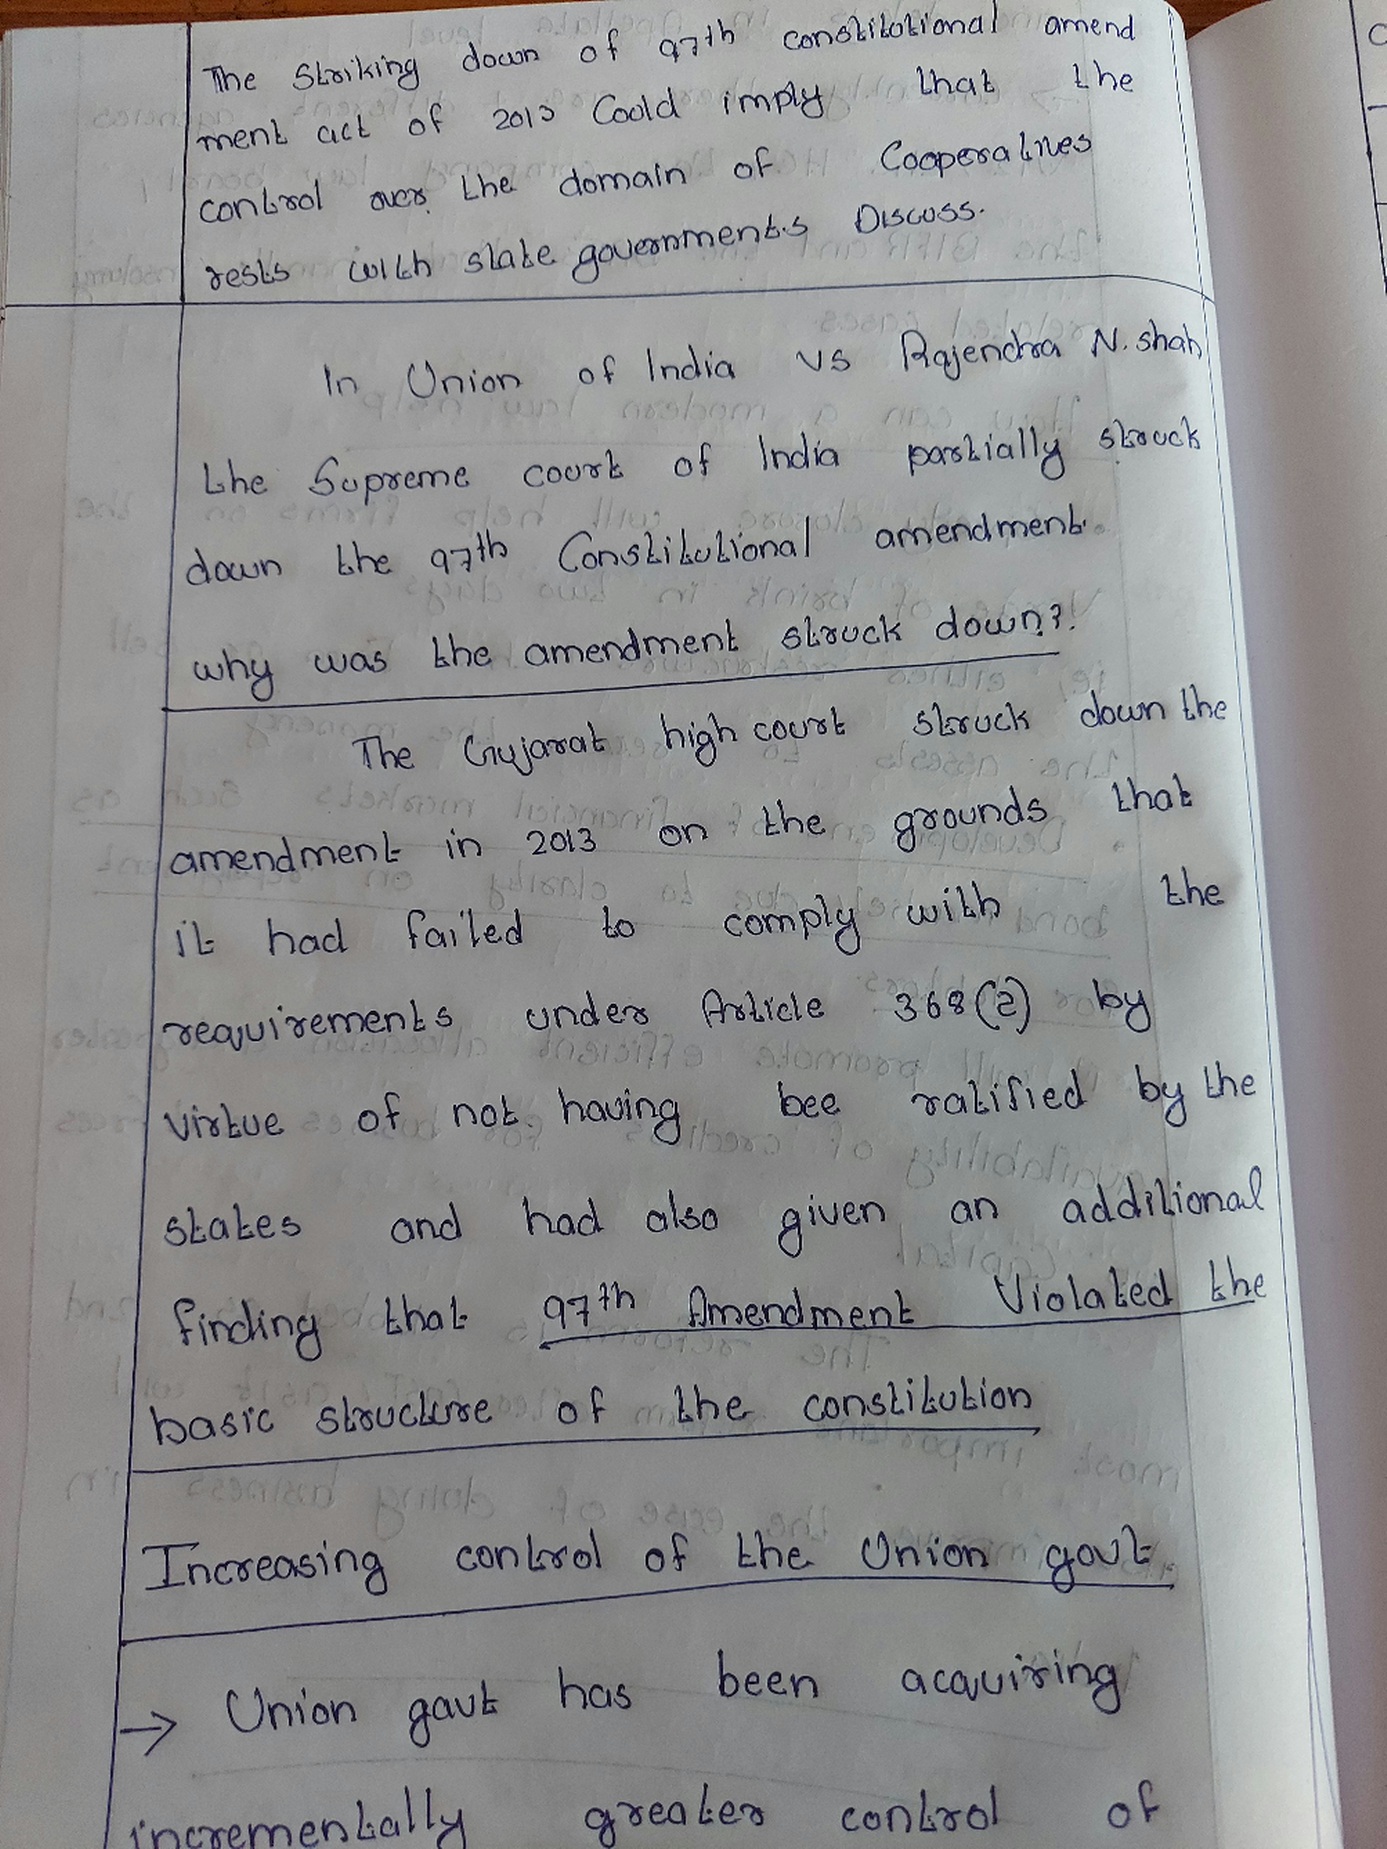 The striking down of 97th constitutional amend
ment act of 2013 Could imply that the
control over the domain of Cooperatives
rests with state governments Discuss.
In Union of India vs Rajendra N. shah
the Supreme court of India partially struck
down the 97th Constitutional amendment.
why was the amendment struck down?
The Gujarat high court struck down the
amendment in 2013 on the grounds that
it had failed to comply with the
requirements under Article 368(2) by
virtue of not having bee ratified by the
states and had also given an additional
finding that 97th Amendment Violated the
basic structure of the constitution
Increasing control of the Union govt
→ Union govt has been acquiring
incrementally greater control of